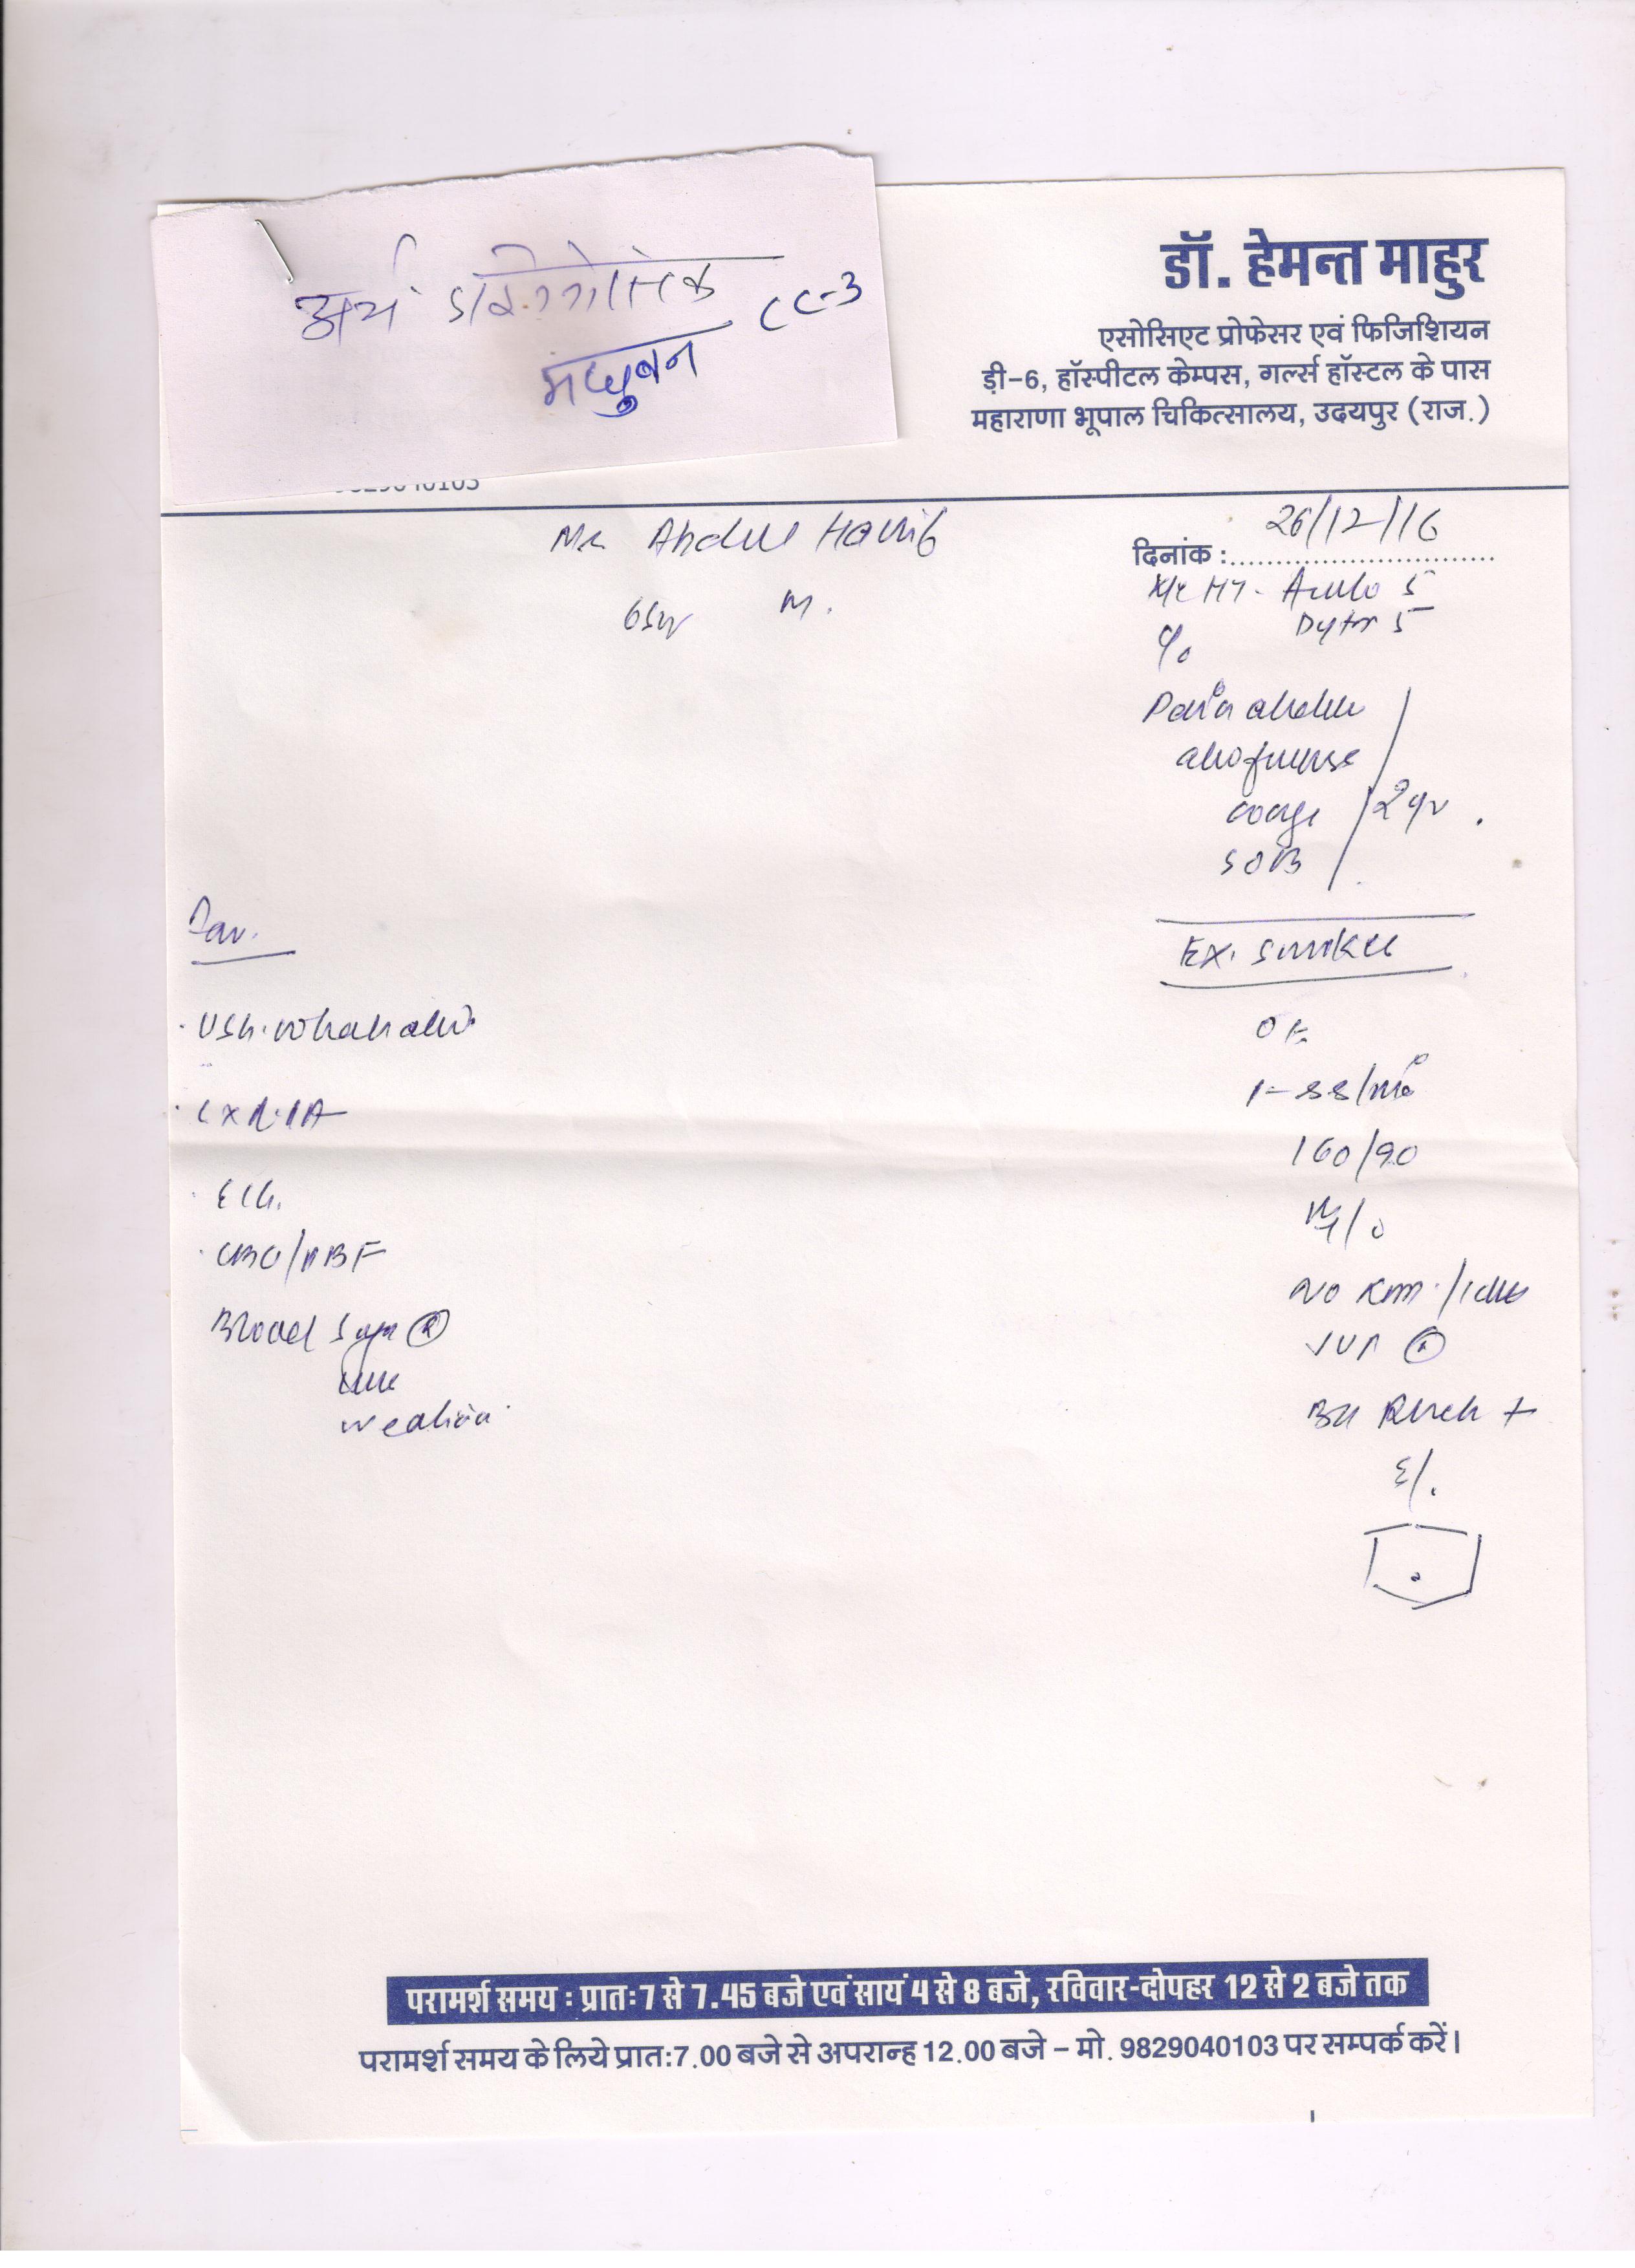 अर्थ डायग्नोस्टिक
CC-3
मधुबन
डॉ. हेमन्त माहुर
एसोसिएट प्रोफेसर एवं फिजिशियन
ड़ी-6, हॉस्पीटल केम्पस, गर्ल्स हॉस्टल के पास
महाराणा भूपाल चिकित्सालय, उदयपुर (राज.)
9829040103
Mr Abdul
65yr M.
दिनांक : 26/12/16
HT - Amlo 5
Dytor 5
C/o
Pain abdo
cough
SOB
2yr.
Ex. Smoker
O/E
P- 88/mi
160/90
No
JVP
+
S/.
USG. whole abdo
CXR. PA
ECG.
CBC/PBF
Blood Sugar (R)
Urea
Creatinin
परामर्श समय : प्रातः 7 से 7.45 बजे एवं सायं 4 से 8 बजे, रविवार-दोपहर 12 से 2 बजे तक
परामर्श समय के लिये प्रात:7.00 बजे से अपरान्ह 12.00 बजे – मो. 9829040103 पर सम्पर्क करें।